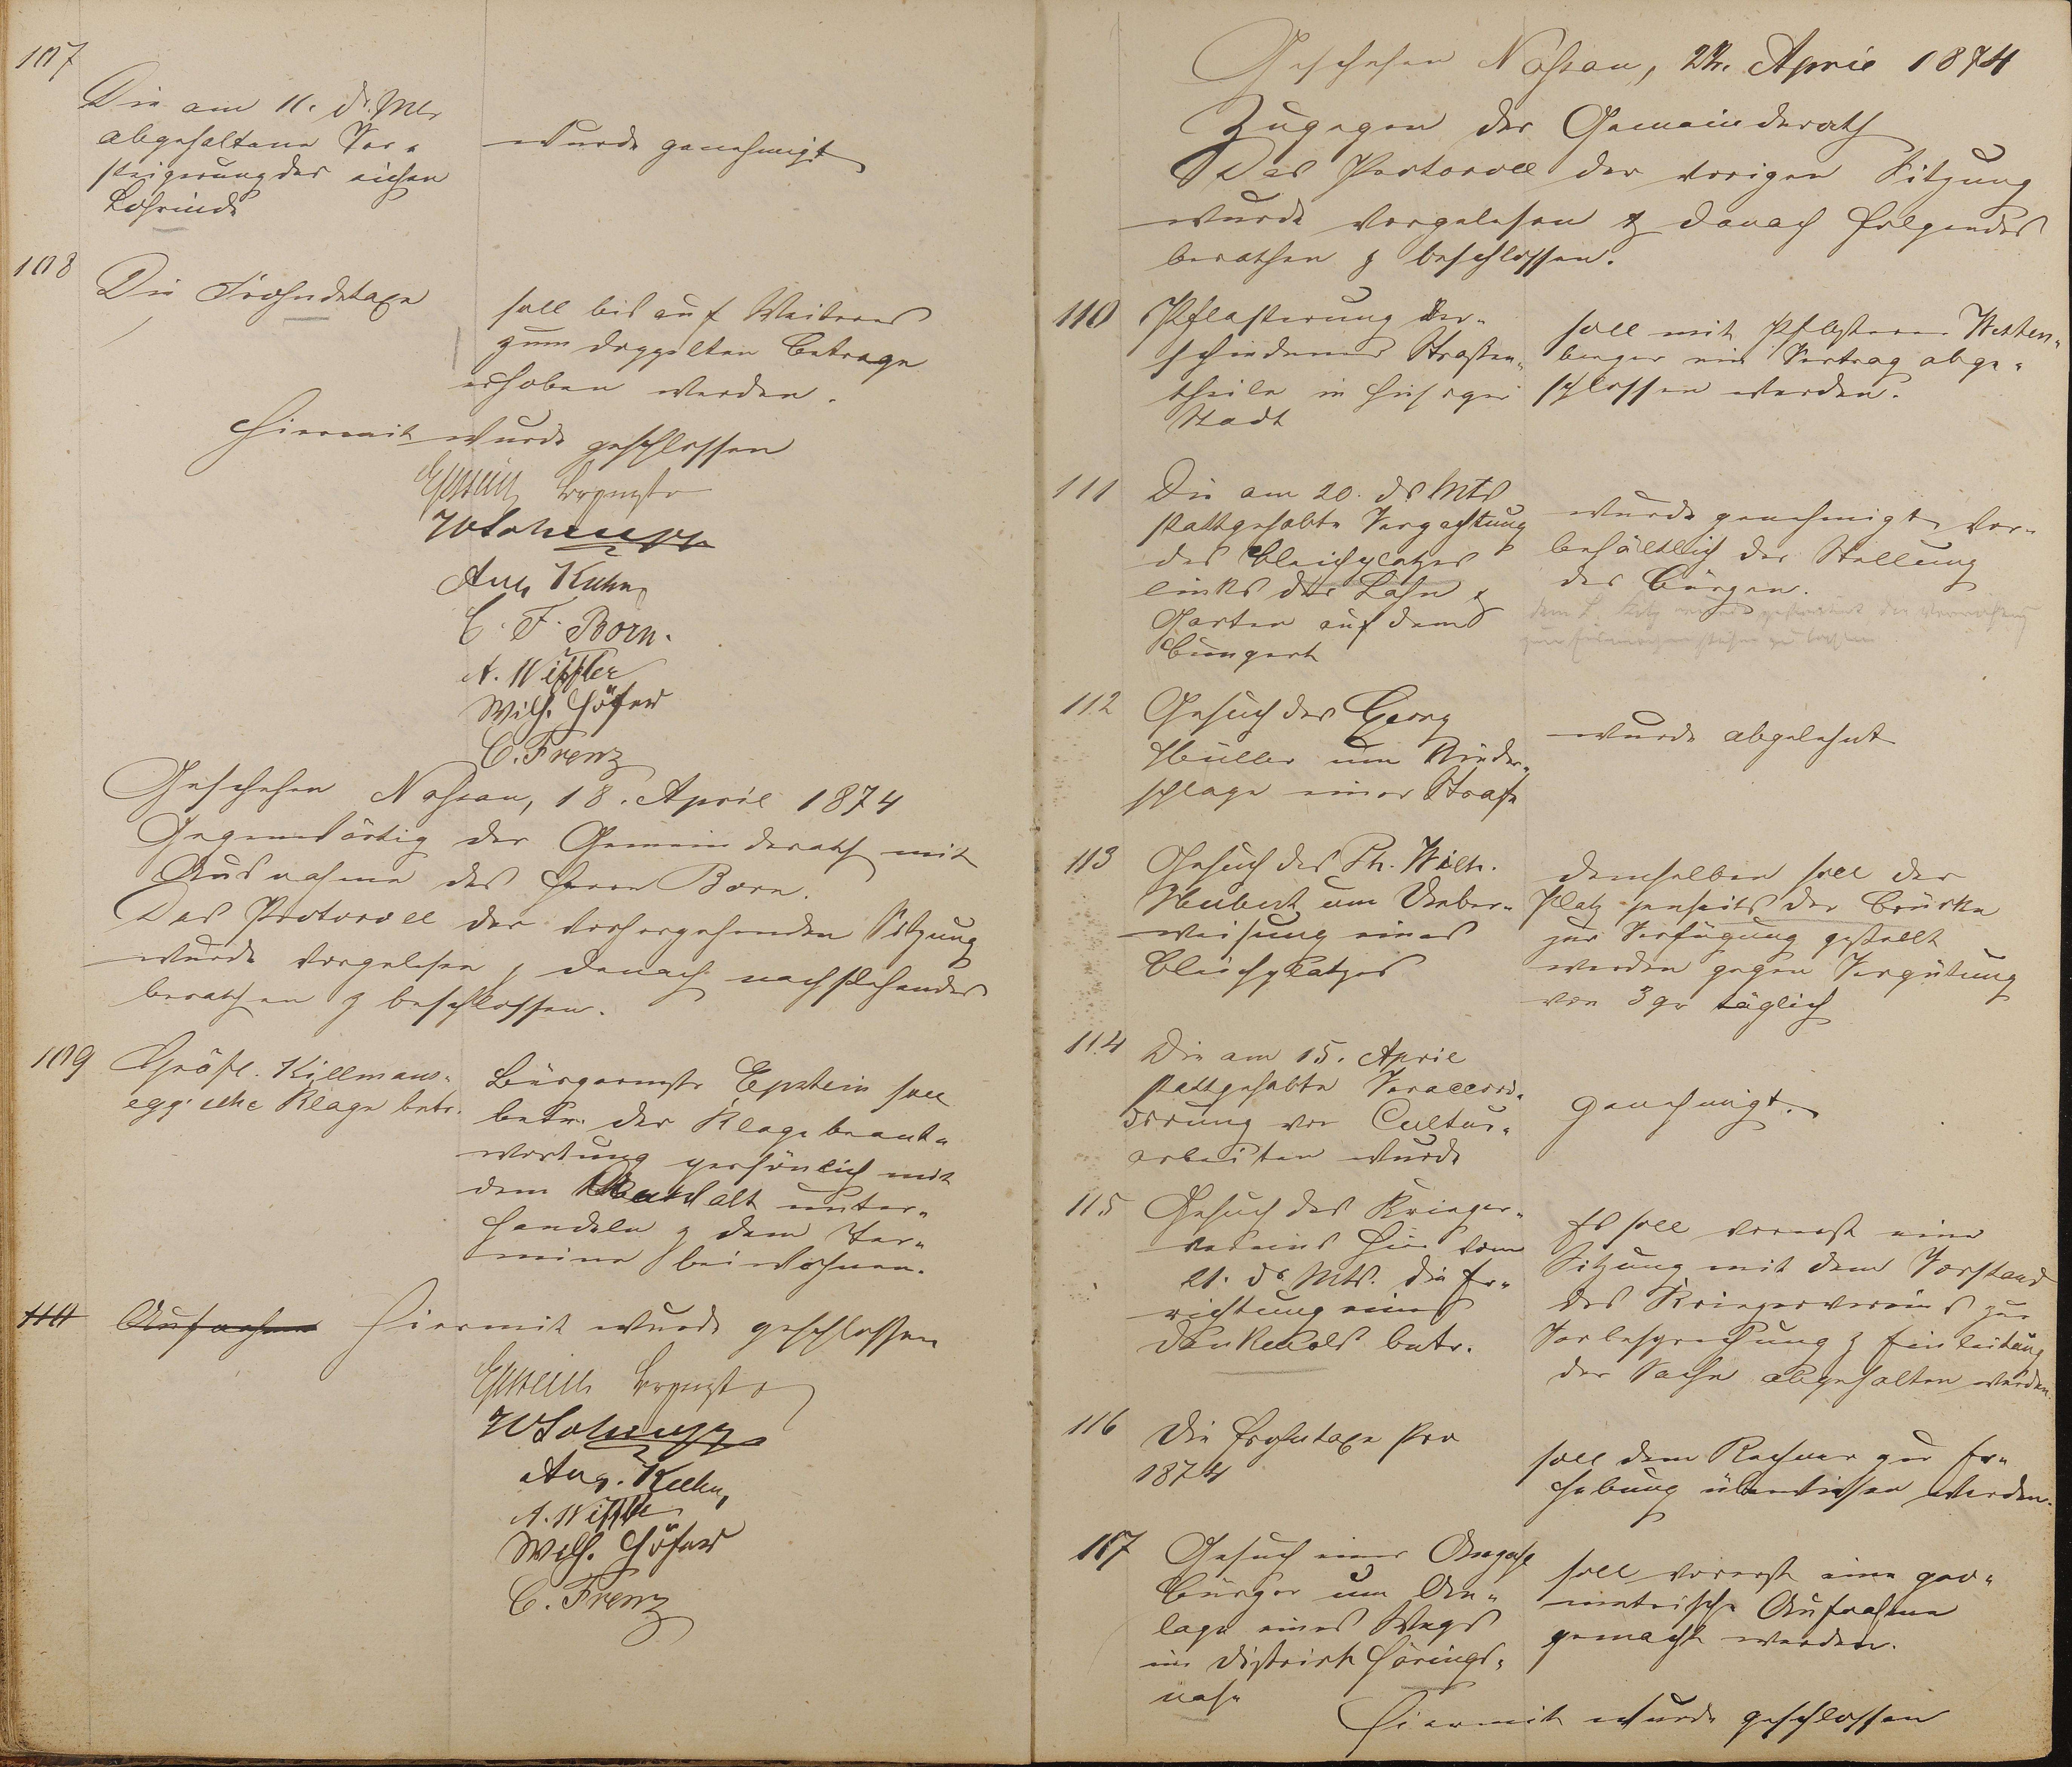 107
Die am 11. ds. Mts
abgehaltene Ver-
steigerung der eichen
Lohrinde
wurde genehmigt
108
Die Frohndetaxe
soll bis auf Weiteres
zum doppelten Betrage
erhoben werden.
Hiermit wurde geschlossen
Epstein Brgmstr
Aug. Kuhn
C. F. Born.
Wilh. Höfer
C. Frenz
Geschehen Nassau, 18. April 1874
Gegenwärtig der Gemeinderath mit
Ausnahme des Herrn Born.
Das Protocoll der vorhergehenden Sitzung
wurde vorgelesen & danach nachstehendes
berathen & beschlossen.
109
Gräfl. Killmans-
egg'sche Klage betr.
Bürgermstr Epstein soll
betr. der Klagebeant-
wortung persönlich mit
dem Anwalt unter-
handeln & dem Ter-
mine beiwohnen.
110 Aufnahme Hiermit wurde geschlossen
Epstein Brgmstr
Aug. Kuhn
Wilh. Höfer
C. Frenz
Geschehen Nassau, 22. April 1874
Zugegen der Gemeinderath
Das Protocoll der vorigen Sitzung
wurde vorgelesen & danach folgendes
berathen & beschlossen.
110
Pflasterung ver-
schiedener Straßen-
theile in hiesiger
Stadt
soll mit Pflasterer Wetten-
berger ein Vertrag abge-
schlossen werden.
111
Die am 20. ds Mts
stattgehabte Verpachtung
des Bleichplatzes
links der Lahn &
Garten auf dem
Bungert
wurde genehmigt, vor-
behältlich der Stellung
der Bürgen.
112
Gesuch des Georg
Müller um Nieder-
schlage einer Strafe
wurde abgelehnt
113
Gesuch des Ph. Wilh.
Hubert um Ueber-
weisung eines
Bleichplatzes
demselben soll der
Platz jenseits der Brücke
zur Verfügung gestellt
werden gegen Vergütung
von 3 gr täglich
114
Die am 15. April
stattgehabte Veraccord-
irung von Cultur-
arbeiten wurde
genehmigt.
115
Gesuch des Krieger-
vereins hier vom
21. ds Mts. die Er-
richtung eines
Denkmals betr.
Es soll vorerst eine
Sitzung mit dem Vorstand
des Kriegervereins zur
Vorbesprechung & Einleitung
der Sache abgehalten werden.
116
Die Frohntaxe pro
1874
soll dem Rechner zur Er-
hebung überwiesen werden.
117
Gesuch einer Anzahl
Bürger um An-
lage eines Wegs
im District Härings-
nase
soll vorerst eine geo-
metrische Aufnahme
gemacht werden.
Hiermit wurde geschlossen